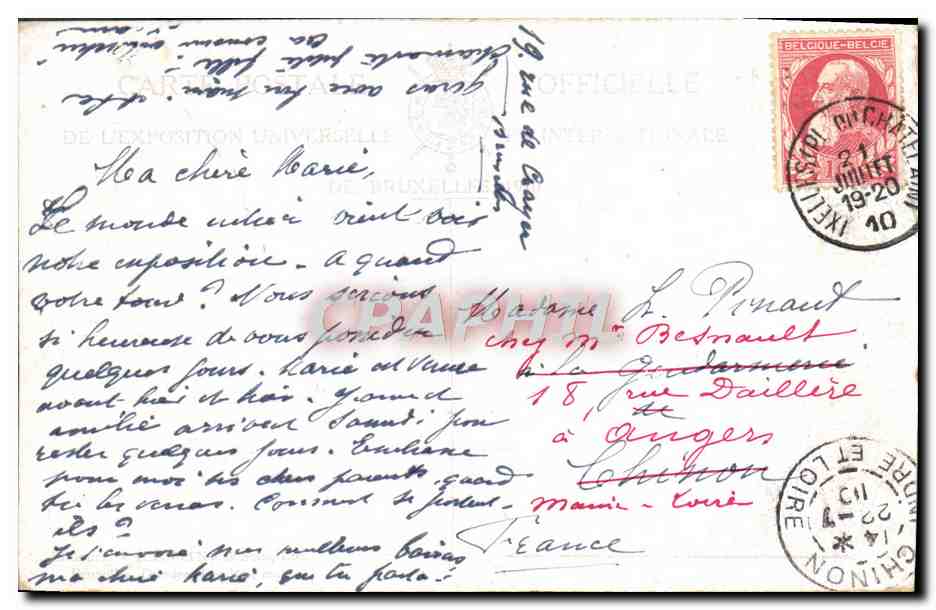 CARTE POSTALE OFFICIELLE
DE L'EXPOSITION UNIVERSELLE & INTERNATIONALE
DE BRUXELLES 1910
BELGIQUE-BELGIE
IXELLES (PL. DU CHATELAIN)
21
JUILLET
19-20
10
19, rue de Crayer
Bruxelles
Ma chère Marie,
Le monde entier vient voir
notre exposition. A quand
votre tour? Nous serions
si heureuse de vous posséder
quelques jours. Marie est venue
avant hier et hier.
Amélie arrivent Samedi pour
rester quelques jours. Embrasse
pour moi tes chers parents, quand
tu les verras. Comment se portent
ils?
Je t'envoie mes meilleurs baisers
ma chère Marie, que tu
Madame L. Pinault
chez Mr Besnault
à la Gendarmerie
18, rue Daillère
de
à Angers
Chinon
Maine-Loire
France
CHINON
INDRE ET LOIRE
14
22
10
CRAPHIL